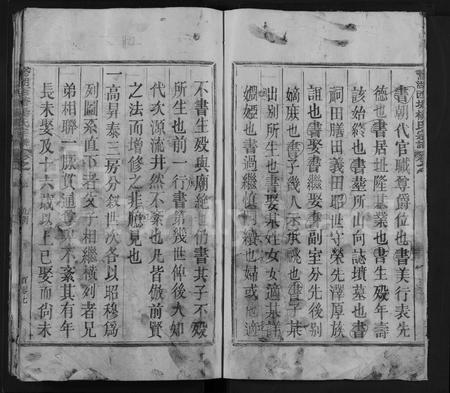 書朝代官職尊爵位也書美行表先
德也書居址隆基業也書生歿年壽
該始終也書塋所山向誌墳墓也書
祠田膳田義田耶世守榮先澤原族
誼也書娶書繼娶書副室分先後別
嫡庶也書子幾人示承魂也書子某
出别所生也書娶某姓女女適某詳
婣婭也書過繼慎 續也婦或 適
不書生歿與廟絶也仍書其子不歿
所生也前一行書第幾世俾後人如
代次源流井然不紊也凡皆倣前賢
之法而增修之非臆見也
一高昇泰三房分敘世次各以昭穆爲
列圖系直下者父子相繼橫列者兄
弟相聯一脈貫通 不紊其有年
長未娶及十六歲以上已娶而尙未